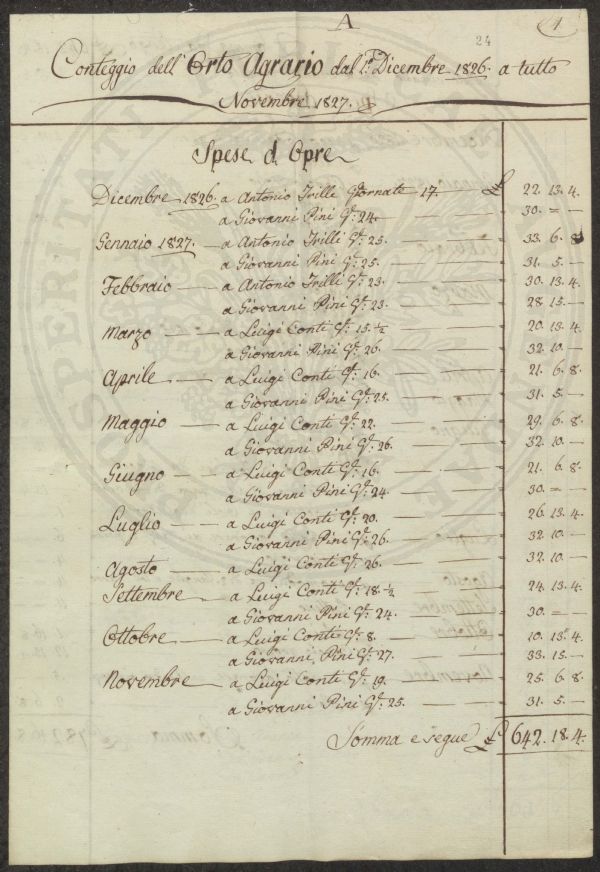 A
24
1
Conteggio dell' Orto Agrario dal 1.º Dicembre 1826. a tutto
Novembre 1827.
Spese d Opre
Dicembre 1826. a Antonio Trilli Giornate 17. — £ 22. 13. 4.
a Giovanni Pini Gte: 24. — 30. = —
Gennaio 1827. — a Antonio Trilli Gte: 25. — 33. 6. 8
a Giovanni Pini Gte: 25. — 31. 5. —
Febbraio — a Antonio Trilli Gte: 23 — 30. 13. 4
a Giovanni Pini Gte: 23. — 28. 15. —
Marzo — a Luigi Conti Gte: 15. ½ — 20. 13. 4
a Giovanni Pini Gte: 26. — 32. 10. —
Aprile — a Luigi Conti Gte: 16. — 21. 6. 8.
a Giovanni Pini Gte: 25. — 31. 5. —
Maggio — a Luigi Conti Gte: 22. — 29. 6. 8.
a Giovanni Pini Gte: 26. — 32. 10. —
Giugno — a Luigi Conti Gte: 16. — 21. 6. 8.
a Giovanni Pini Gte: 24. — 30. = —
Luglio — a Luigi Conti Gte: 20. — 26. 13. 4
a Giovanni Pini Gte: 26. — 32. 10. —
Agosto — a Luigi Conti Gte: 26. — 32. 10. —
Settembre — a Luigi Conti Gte: 18. ½ — 24. 13. 4
a Giovanni Pini Gte: 24. — 30. = —
Ottobre — a Luigi Conti Gte: 8. — 10. 13. 4
a Giovanni Pini Gte: 27. — 33. 15. —
Novembre — a Luigi Conti Gte: 19. — 25. 6. 8
a Giovanni Pini Gte: 25. — 31. 5. —
Somma e segue £ 642. 18. 4.